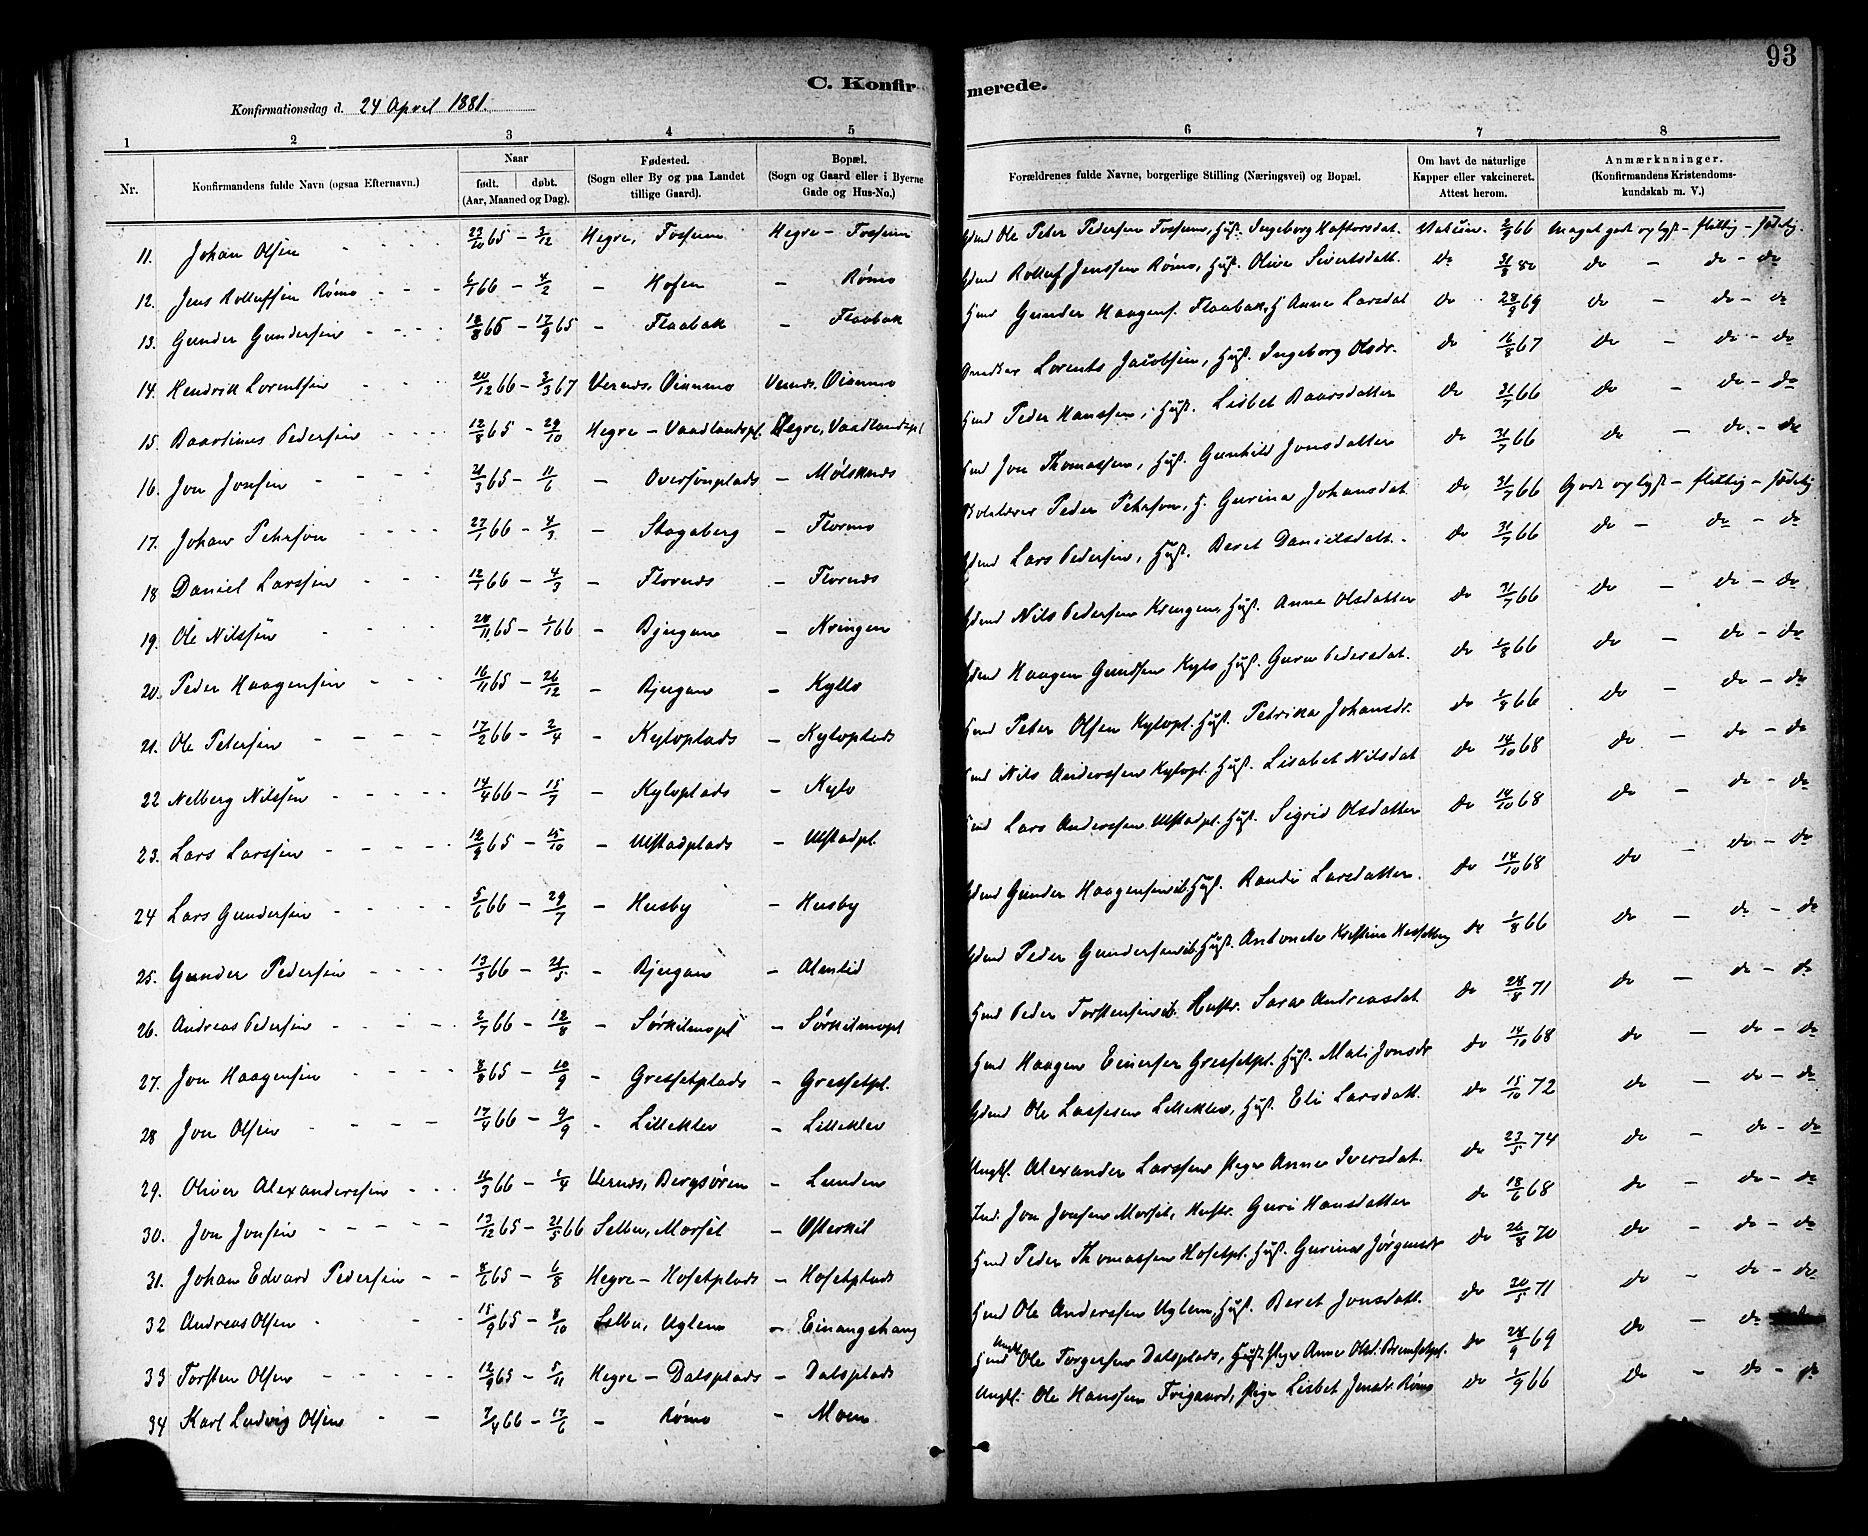 93
C. Konfirmerede.
Konfirmationsdag d. 24 April 1881.
1 2 3 4 5 6 7 8
Nr. Konfirmandens fulde Navn (ogsaa Efternavn.) Naar født. døbt. (Aar, Maaned og Dag). Fødested. (Sogn eller By og paa Landet tillige Gaard). Bopæl. (Sogn og Gaard eller i Byerne Gade og Hus-No.) Forældrenes fulde Navne, borgerlige Stilling (Næringsvei) og Bopæl. Om havt de naturlige Kapper eller vakcineret. Attest herom. Anmærknninger. (Konfirmandens Kristendomskundskab m. V.)
11. Johan Olsen 23/10 65 - 3/12 Hegre, Fossum Hegre - Fossum Gmd Ole Peter Pedersen Fossum, Hust. Ingeborg Haftorsdat. Vakcin. 2/9 66 Meget godt oplyst - flittig - sædelig.
12. Jens Rolluffsen Rømo 6/1 66 - 4/2 - Hofen - Rømo Gmd Rolluf Jenssen Rømo, Hust. Olive Sivertsdatt. do 31/8 80 do - do - do
13. Gunder Gundersen 18/8 65 - 17/9 65 - Flaabak - Flaabak Hmd Gunder Haagens. Flaabak, H Anne Larsdat do 28/9 69 do - do - do
14. Hendrik Lorentsen 20/12 66 - 3/3 67 Vernes, Øianmo Vernes, Øianmo Lorents Jacobsen, Hust. Ingeborg Olsdr. do 16/8 67 do - do - do
15. Baartinus Pedersen 12/8 65 - 29/10 Hegre - Vaadlandspl. Hegre, Vaadlandspl Hmd Peder Hanssen, Hust. Lisbet Baarsdatter do 31/7 66 do - do - do
16. Jon Jonsen 21/3 65 - 11/6 - Oversonplads - Mølsknes Hmd Jon Thomassen, Hust. Gunhild Jonsdatter do 31/7 66 do - do - do
17. Johan Petersen 27/1 66 - 4/3 - Stagaberg - Flormo Peder Peterson, H. Gurina Johansdat do 31/7 66 Godt oplyst - flittig - sædelig
18 Daniel Larssen 12/1 66 - 4/3 - Flornes - Flornes Gmd Lars Pedersen, Hust. Beret Danielsdatt. do 31/7 66 do - do - do
19. Ole Nilssen 28/11 65 - 1/1 66 - Bjergan - Kringen Gmd Nils Pedersen Kringen, Hust. Anne Olsdatter do 31/7 66 do - do - do
20. Peder Haagensen 16/11 65 - 26/12 - Bjergan - Kyllo Gmd Haagen Gundsen Kylo Hust. Guru Pedersdat. do 1/8 66 do - do - do
21. Ole Petersen 17/2 66 - 2/4 - Kyloplads - Kyloplads Hmd Peter Olsen Kylopl. Hust. Petrikka Johansdr. do 1/8 66 do - do - do
22 Nelberg Nilssen 14/4 66 - 15/7 - Kyloplads - Kylo Hmd Nils Anderssen Kylopl. Hust. Lisabet Nilsdat do 14/10 68 do - do - do
23. Lars Larssen 12/9 65 - 15/10 - Ulstadplads - Ulstadpl. Hmd Lars Anderssen Ulstadpl. Hust. Sigrid Olsdatter do 14/10 68 do - do - do
24 Lars Gundersen 5/6 66 - 29/7 - Husby - Husby Gmd Gunder Haagensen ib. Hust. Randi Larsdatter. do 14/10 68 do - do - do
25. Gunder Pedersen 13/3 66 - 21/5 - Bjergan - Almlid Gmd Peder Gundersen ib. Hust. Antonete Kristine Hesselberg do 1/8 66 do - do - do
26. Andreas Pedersen 2/7 66 - 12/8 - Sørkilmopl - Sørkilmopl Hmd Peder Torstensen ib. Hustr. Sara Andreasdat do 28/8 71 do - do - do
27. Jon Haagensen 8/8 65 - 10/9 - Gressetplads - Gressetpl. Hmd Haagen Einersen Gressetpl. Hust. Mali Jonsdr do 14/10 68 do - do - do
28 Jon Olsen 17/4 66 - 9/9 - Lilleklev - Lilleklev Gmd Ole Lassesen Lilleklev, Hust. Eli Larsdatt. do 15/10 72 do - do - do
29. Oliver Alexanderssen 16/3 66 - 1/4 Vernes, Bergsøren - Lunden Ungkl. Alexander Larssen Pige Anne Iversdat. do 23/5 74 do - do - do
30. Jon Jonsen 13/12 65 - 21/5 66 Selbu, Morset - Østerkil Ind. Jon Jonsen Morset, Hustr. Guri Hansdatter do 18/6 68 do - do - do
31. Johan Edvard Pedersen 8/6 65 - 6/8 Hegre - Hofetplads - Hofetplads Hmd Peder Thomassen Hofetpl. Hust. Gurina Jørgensdr do 26/8 70 do - do - do
32 Andreas Olsen 15/9 65 - 8/10 Selbu, Uglem - Einangshaug Hmd Ole Anderssen Uglem, Hust. Beret Jonsdatt. do 30/5 71 do - do - do
33 Torsten Olsen 12/9 65 - 5/11 Hegre - Dalsplads - Dalsplads Ungkl Ole Torgersen Dalsplads, Pige Anne Olsd. do 28/9 69 do - do
34 Karl Ludvig Olsen 7/4 66 - 17/6 - Rømo - Moen Ungkl. Ole Hanssen Trøgaard, Pige Lisbet Jensdr. Rømo do 1/9 66 do - do - do